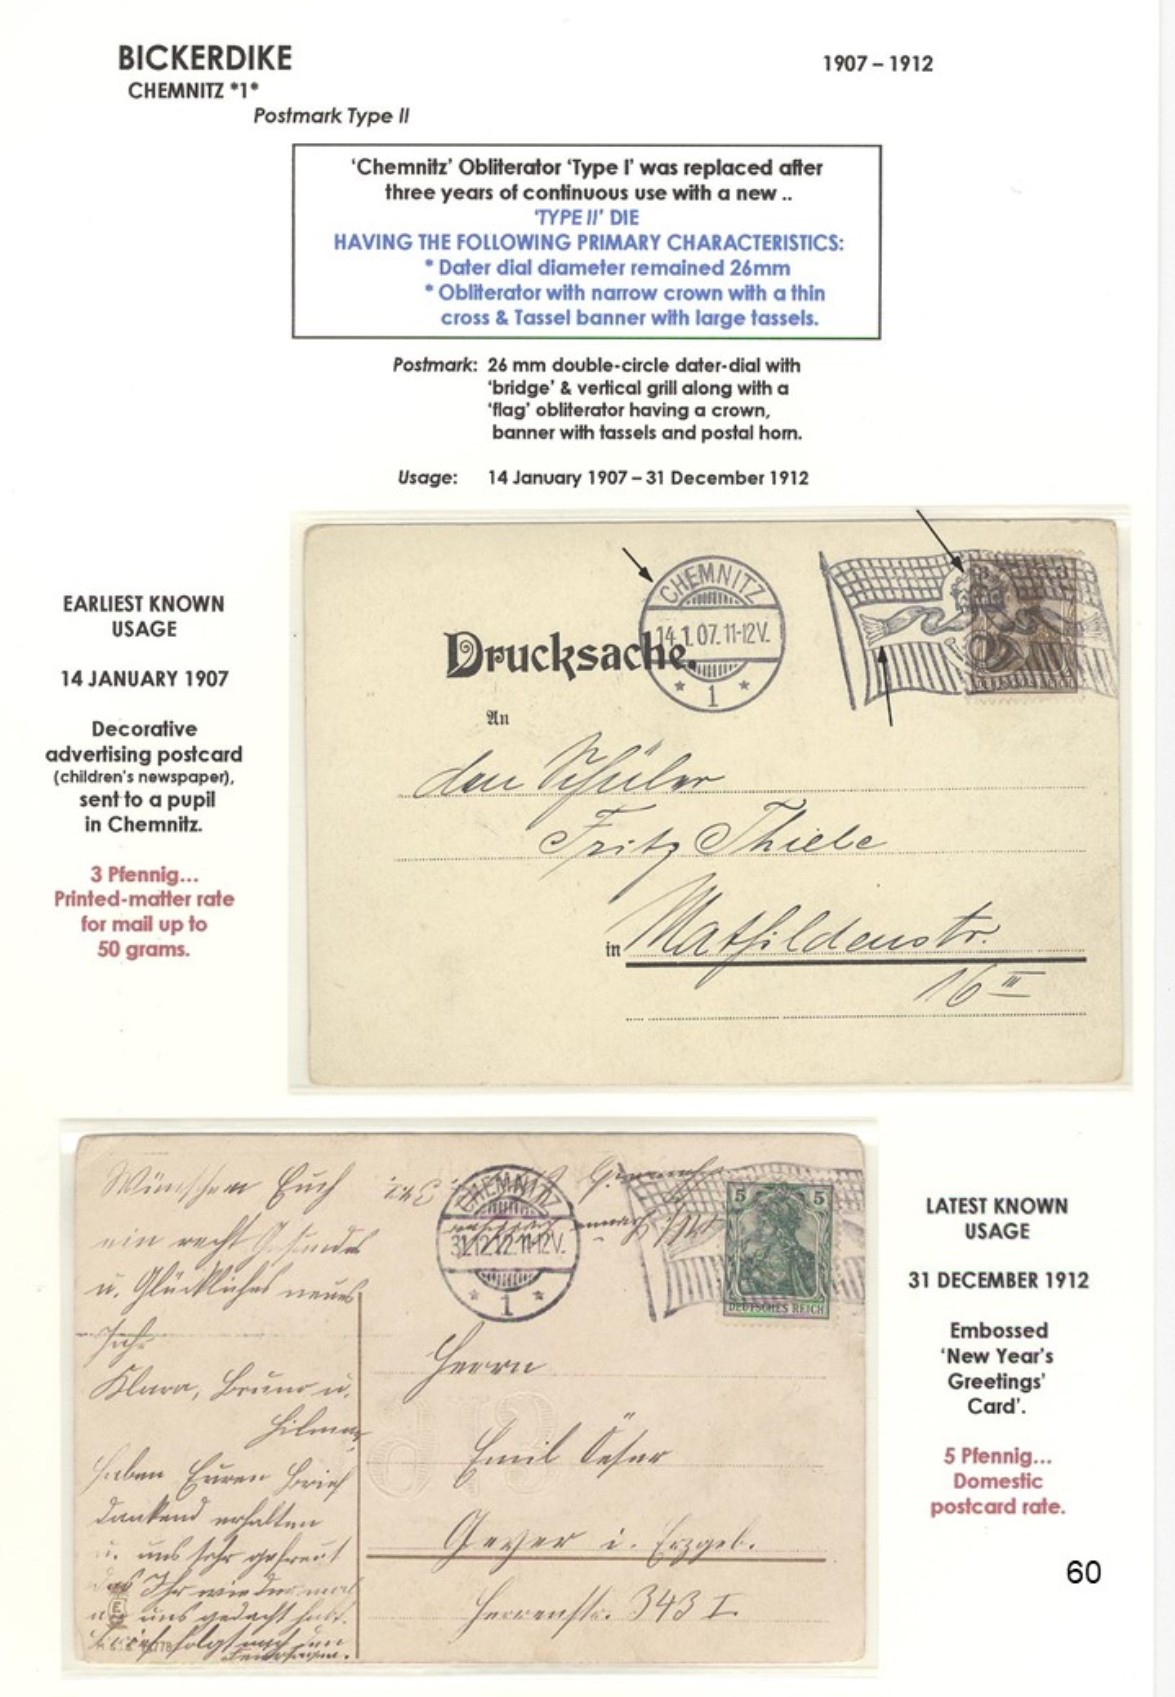 BICKERDIKE
1907 – 1912
CHEMNITZ *1*
Postmark Type II
‘Chemnitz’ Obliterator ‘Type I’ was replaced after
three years of continuous use with a new ..
‘TYPE II’ DIE
HAVING THE FOLLOWING PRIMARY CHARACTERISTICS:
* Dater dial diameter remained 26mm
* Obliterator with narrow crown with a thin
cross & Tassel banner with large tassels.
Postmark: 26 mm double-circle dater-dial with
‘bridge’ & vertical grill along with a
‘flag’ obliterator having a crown,
banner with tassels and postal horn.
Usage: 14 January 1907 – 31 December 1912
EARLIEST KNOWN
USAGE
14 JANUARY 1907
Decorative
advertising postcard
(children's newspaper),
sent to a pupil
in Chemnitz.
3 Pfennig...
Printed-matter rate
for mail up to
50 grams.
CHEMNITZ
14.1.07.11-12V.
* 1 *
Drucksache.
An
den Schüler
Fritz Thiele
in Mathildenstr.
16 III
Wünschen Euch
ein recht Gesundes
u. Glückliches neues
Jahr
Klara, Bruno u.
Hilmar
haben Euren Brief
dankend erhalten
u. uns sehr gefreut
das Ihr wieder mal
an uns gedacht habt.
Brief folgt nach den
Feiertagen.
CHEMNITZ
31.12.12.11-12V.
* 1 *
5 5
DEUTSCHES REICH
Herrn
Emil Öser
Geyer i. Erzgeb.
Herrenstr. 343 I.
LATEST KNOWN
USAGE
31 DECEMBER 1912
Embossed
‘New Year's
Greetings’
Card’.
5 Pfennig...
Domestic
postcard rate.
60